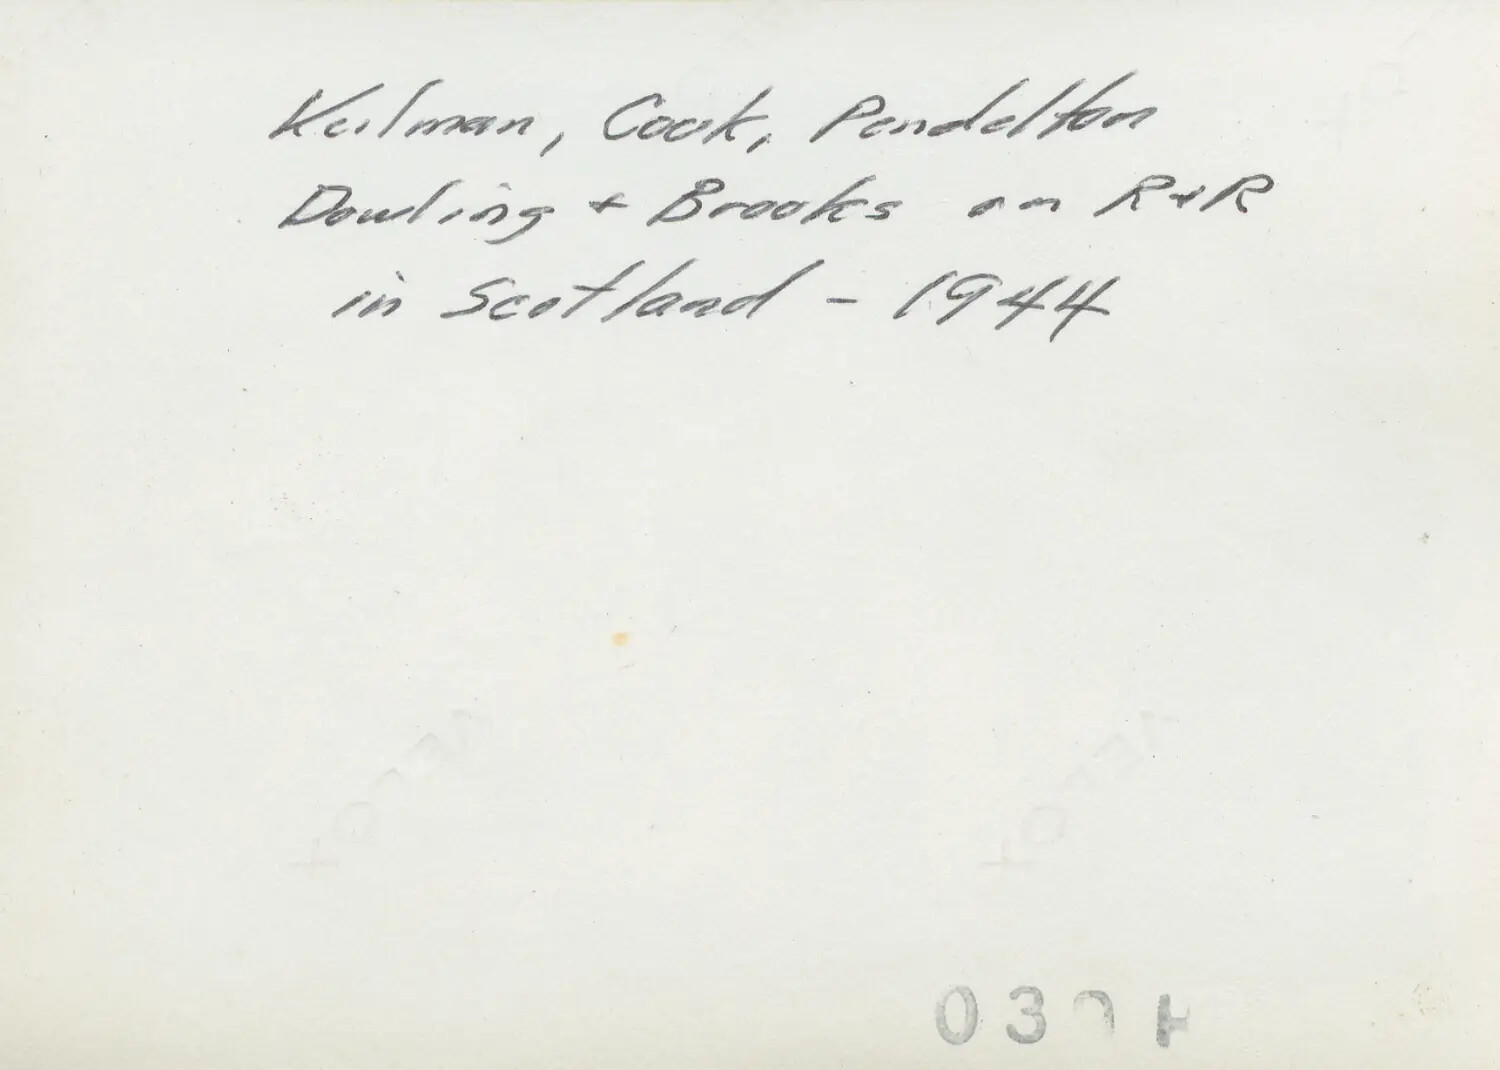 Keilman, Cook, Pendelton
Dowling + Brooks on R+R
in Scotland - 1944
03